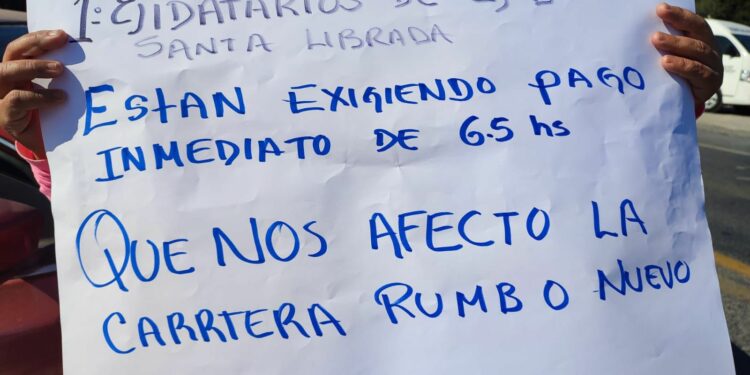 1: EJIDATARIOS DE
SANTA LIBRADA
ESTAN EXIGIENDO PAGO
INMEDIATO DE 6.5 hs
QUE NOS AFECTO LA
CARRTERA RUMBO NUEVO